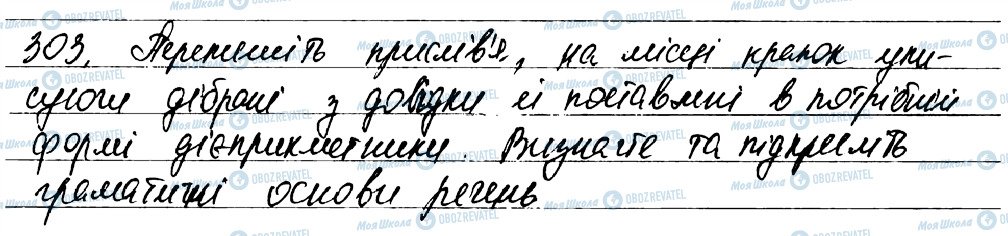 303. Перепишіть прислів'я, на місці крапок упи-
суючи дібрані з довідки й поставлені в потрібній
формі дієприкметники. Визначте та підкресліть
граматичні основи речень